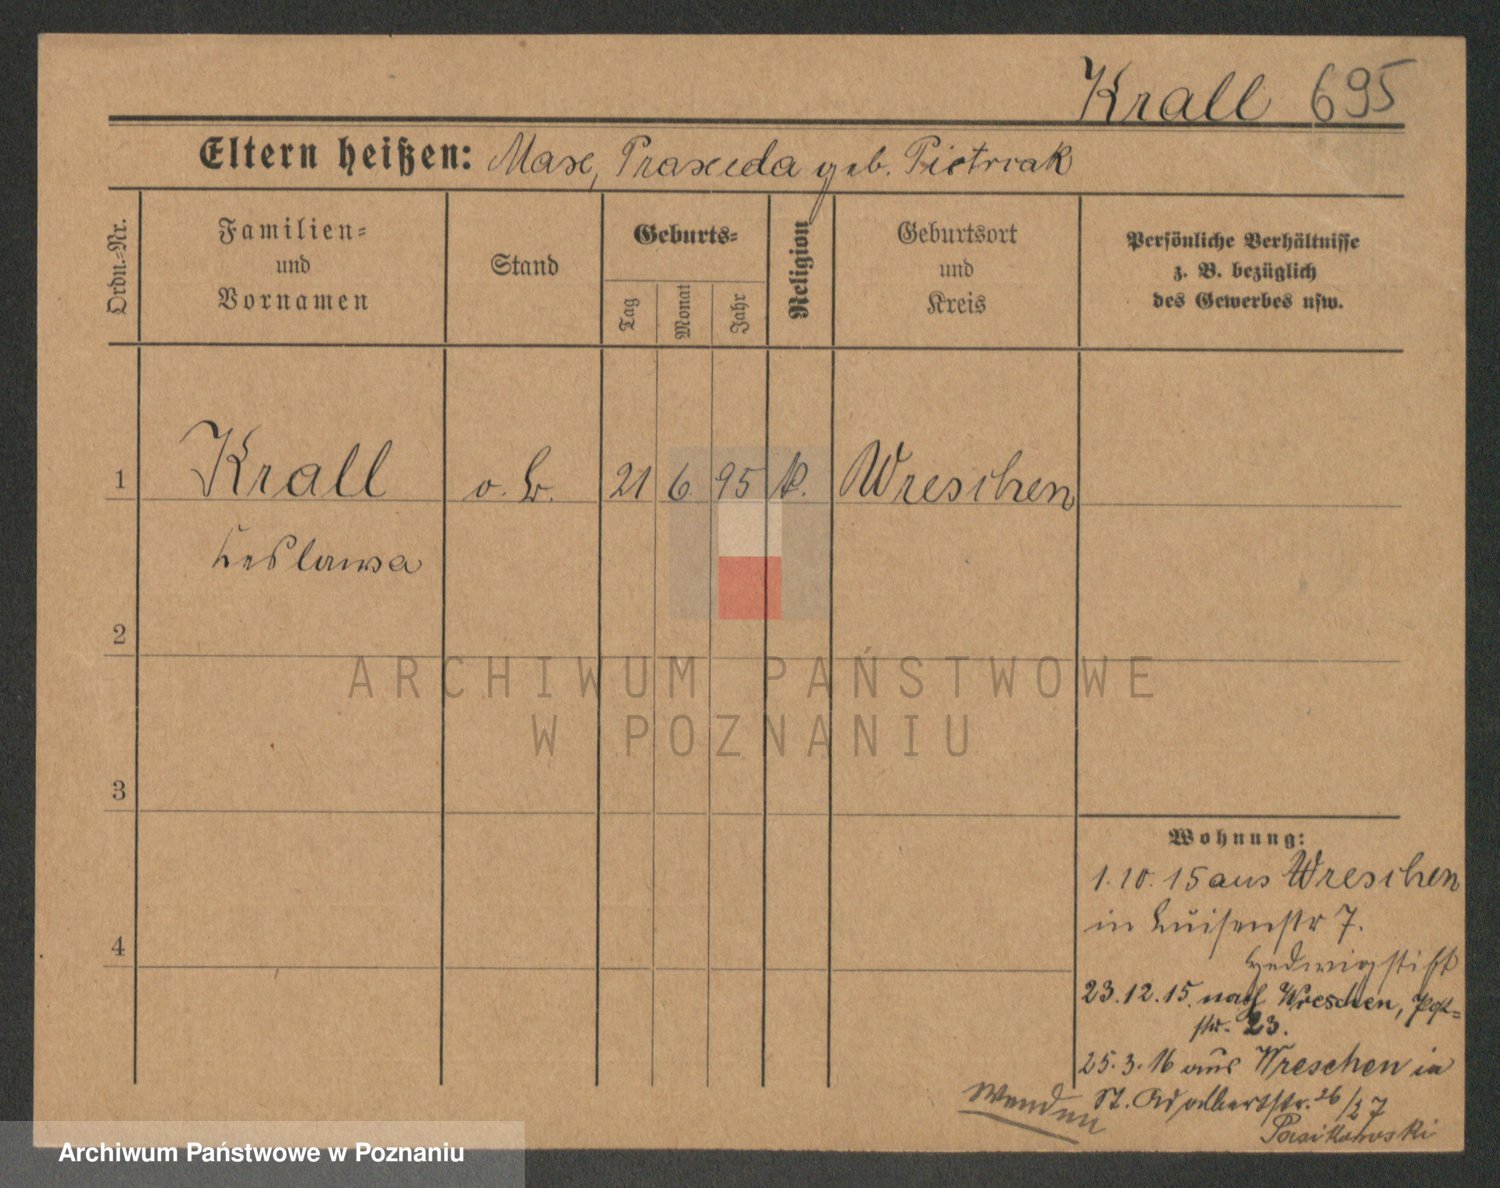 Krall 695
Eltern heißen: Max, Praxeda geb. Pietrzak
Ordn.-Nr.
Familien-
und
Vornamen
Stand
Geburts-
Tag
Monat
Jahr
Religion
Geburtsort
und
Kreis
Persönliche Verhältnisse
z. B. bezüglich
des Gewerbes usw.
1 Krall o. B. 21 6. 95 k. Wreschen
Leslawa
2
3
4
Wohnung:
1.10.15 aus Wreschen
in Luisenstr 7.
Hedwigstift
23.12.15. nach Wreschen,
str. 23.
25.3.16 aus Wreschen in
St. Adalbertstr. 26/27
Pasikowski
Wenden
ARCHIWUM PAŃSTWOWE
W POZNANIU
Archiwum Państwowe w Poznaniu